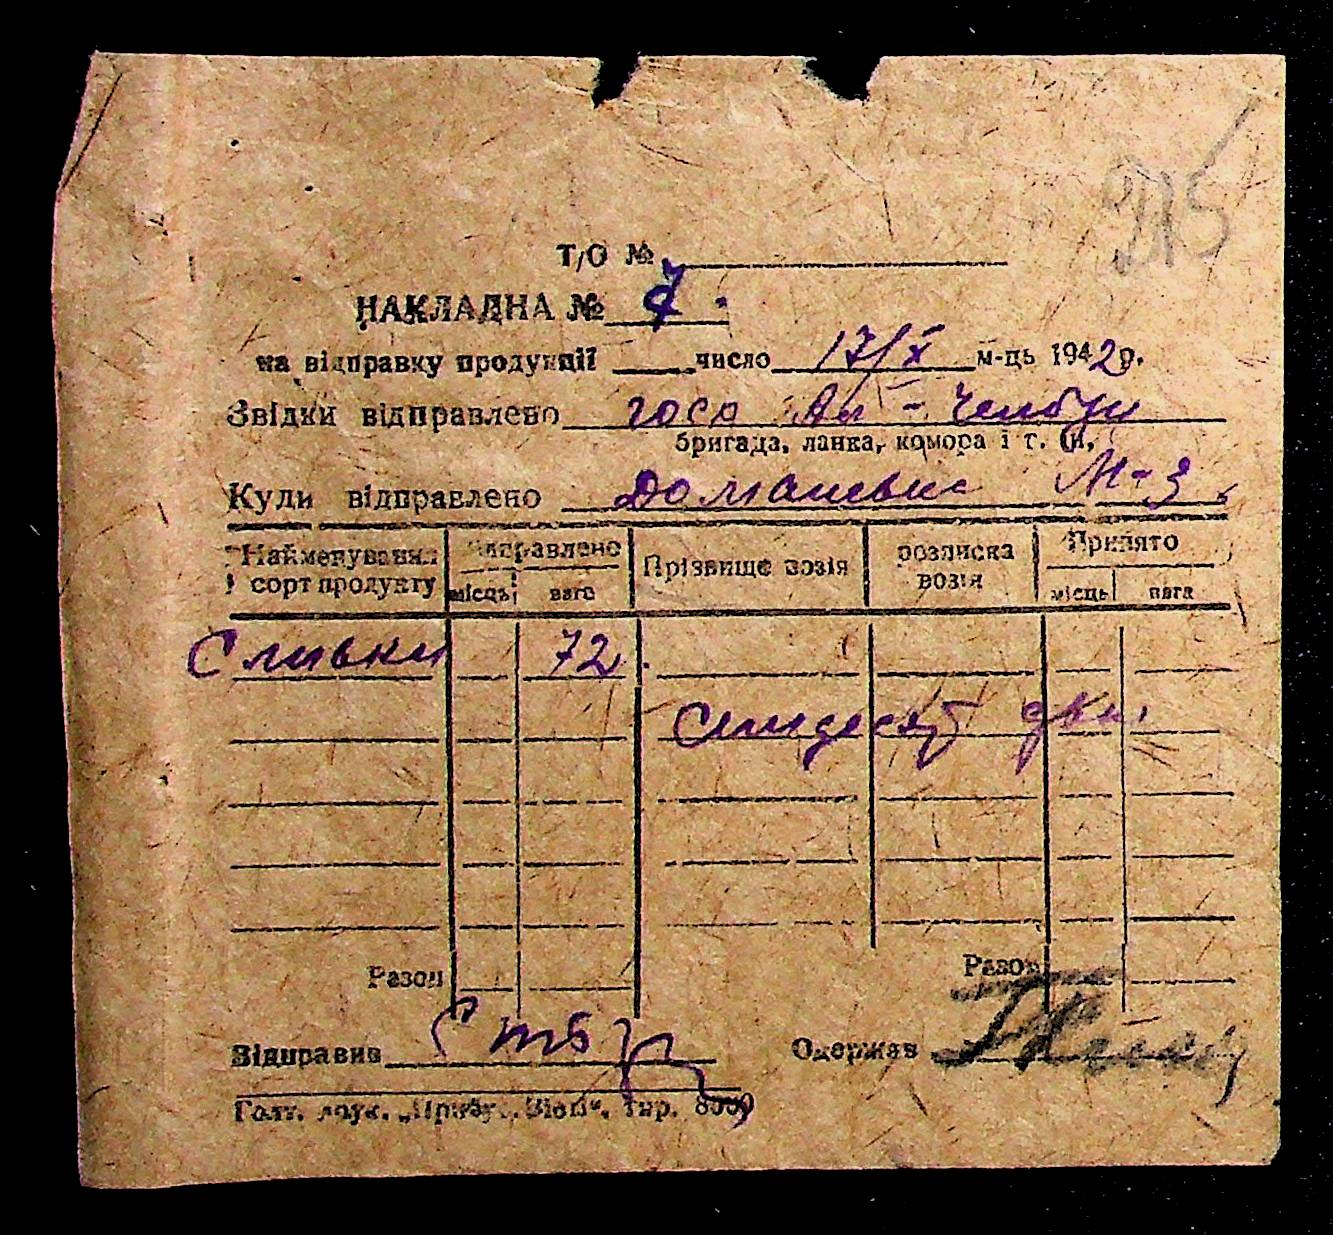 215
Т/О №
НАКЛАДНА № 7.
на відправку продукції ____ число 17/X м-ць 1942 р.
Звідки відправлено
бригада, ланка, комора і т. и.
Куди відправлено Доманевка М-з
Найменування сорт продукту Відправлено місць вага Прізвище возія розписка возія Прийнято місць вага
Сливки 72.
Семдесят два.
Разом Разом
Відправив Одержав
Голт. друк. „Прибуз. Вісті“. тир.